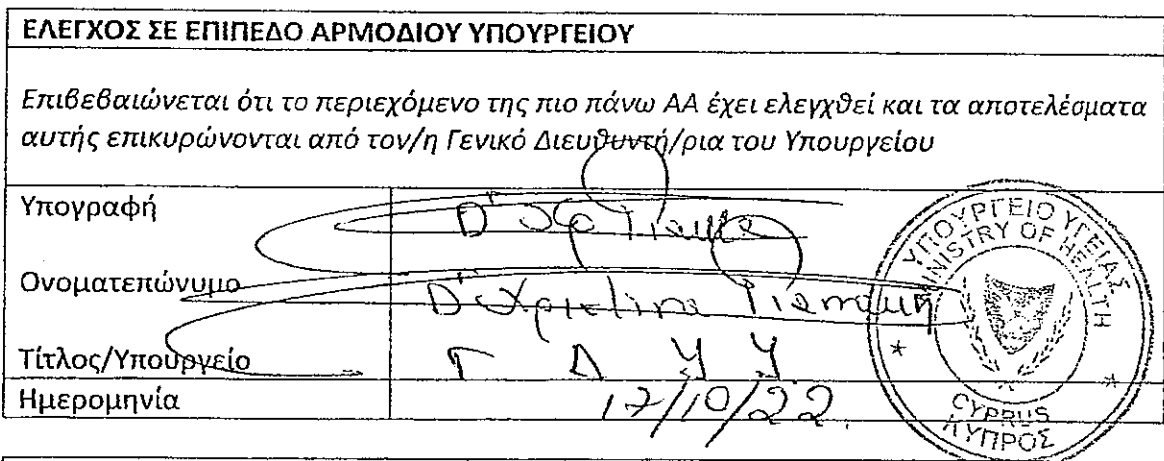 ΕΛΕΓΧΟΣ ΣΕ ΕΠΙΠΕΔΟ ΑΡΜΟΔΙΟΥ ΥΠΟΥΡΓΕΙΟΥ
Επιβεβαιώνεται ότι το περιεχόμενο της πιο πάνω ΑΑ έχει ελεγχθεί και τα αποτελέσματα
αυτής επικυρώνονται από τον/η Γενικό Διευθυντή/ρια του Υπουργείου
Υπογραφή
Ονοματεπώνυμο
Τίτλος/Υπουργείο Γ Δ Υ Υ
Ημερομηνία 17/10/22
ΥΠΟΥΡΓΕΙΟ ΥΓΕΙΑΣ
MINISTRY OF HEALTH
CYPRUS
ΚΥΠΡΟΣ